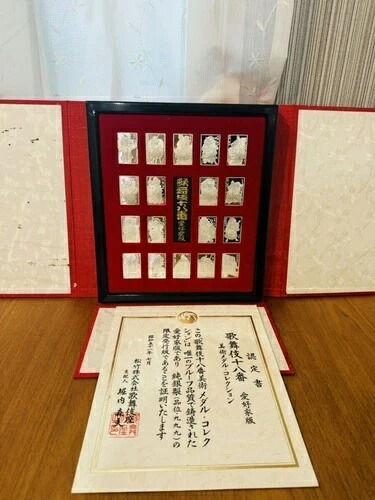 歌舞伎十八番
愛好家版
認定書
歌舞伎十八番 愛好家版
美術メダル・コレクション
この歌舞伎十八番美術メダル・コレク
ションは 唯一のプルーフ品質で鋳造された
愛好家版であり 純銀製(品位・九九九)の
限定発行版であることを証明いたします
昭和五十 年 七月
松竹株式会社歌舞伎座
支配人 堀内